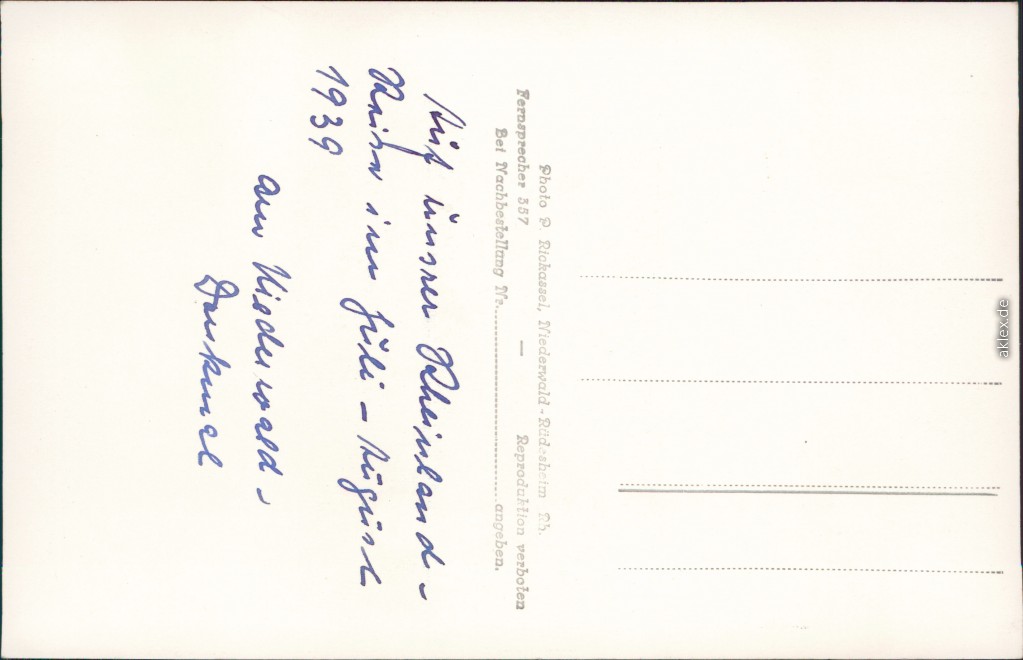 Photo P. Rickassel, Niederwald-Rüdesheim Rh.
Fernsprecher 357 — Reproduktion verboten
Bei Nachbestellung Nr. angeben.
Auf unsrer Rheinland-
Reise im Juli - August
1939
am Niederwald-
Denkmal
aklex.de